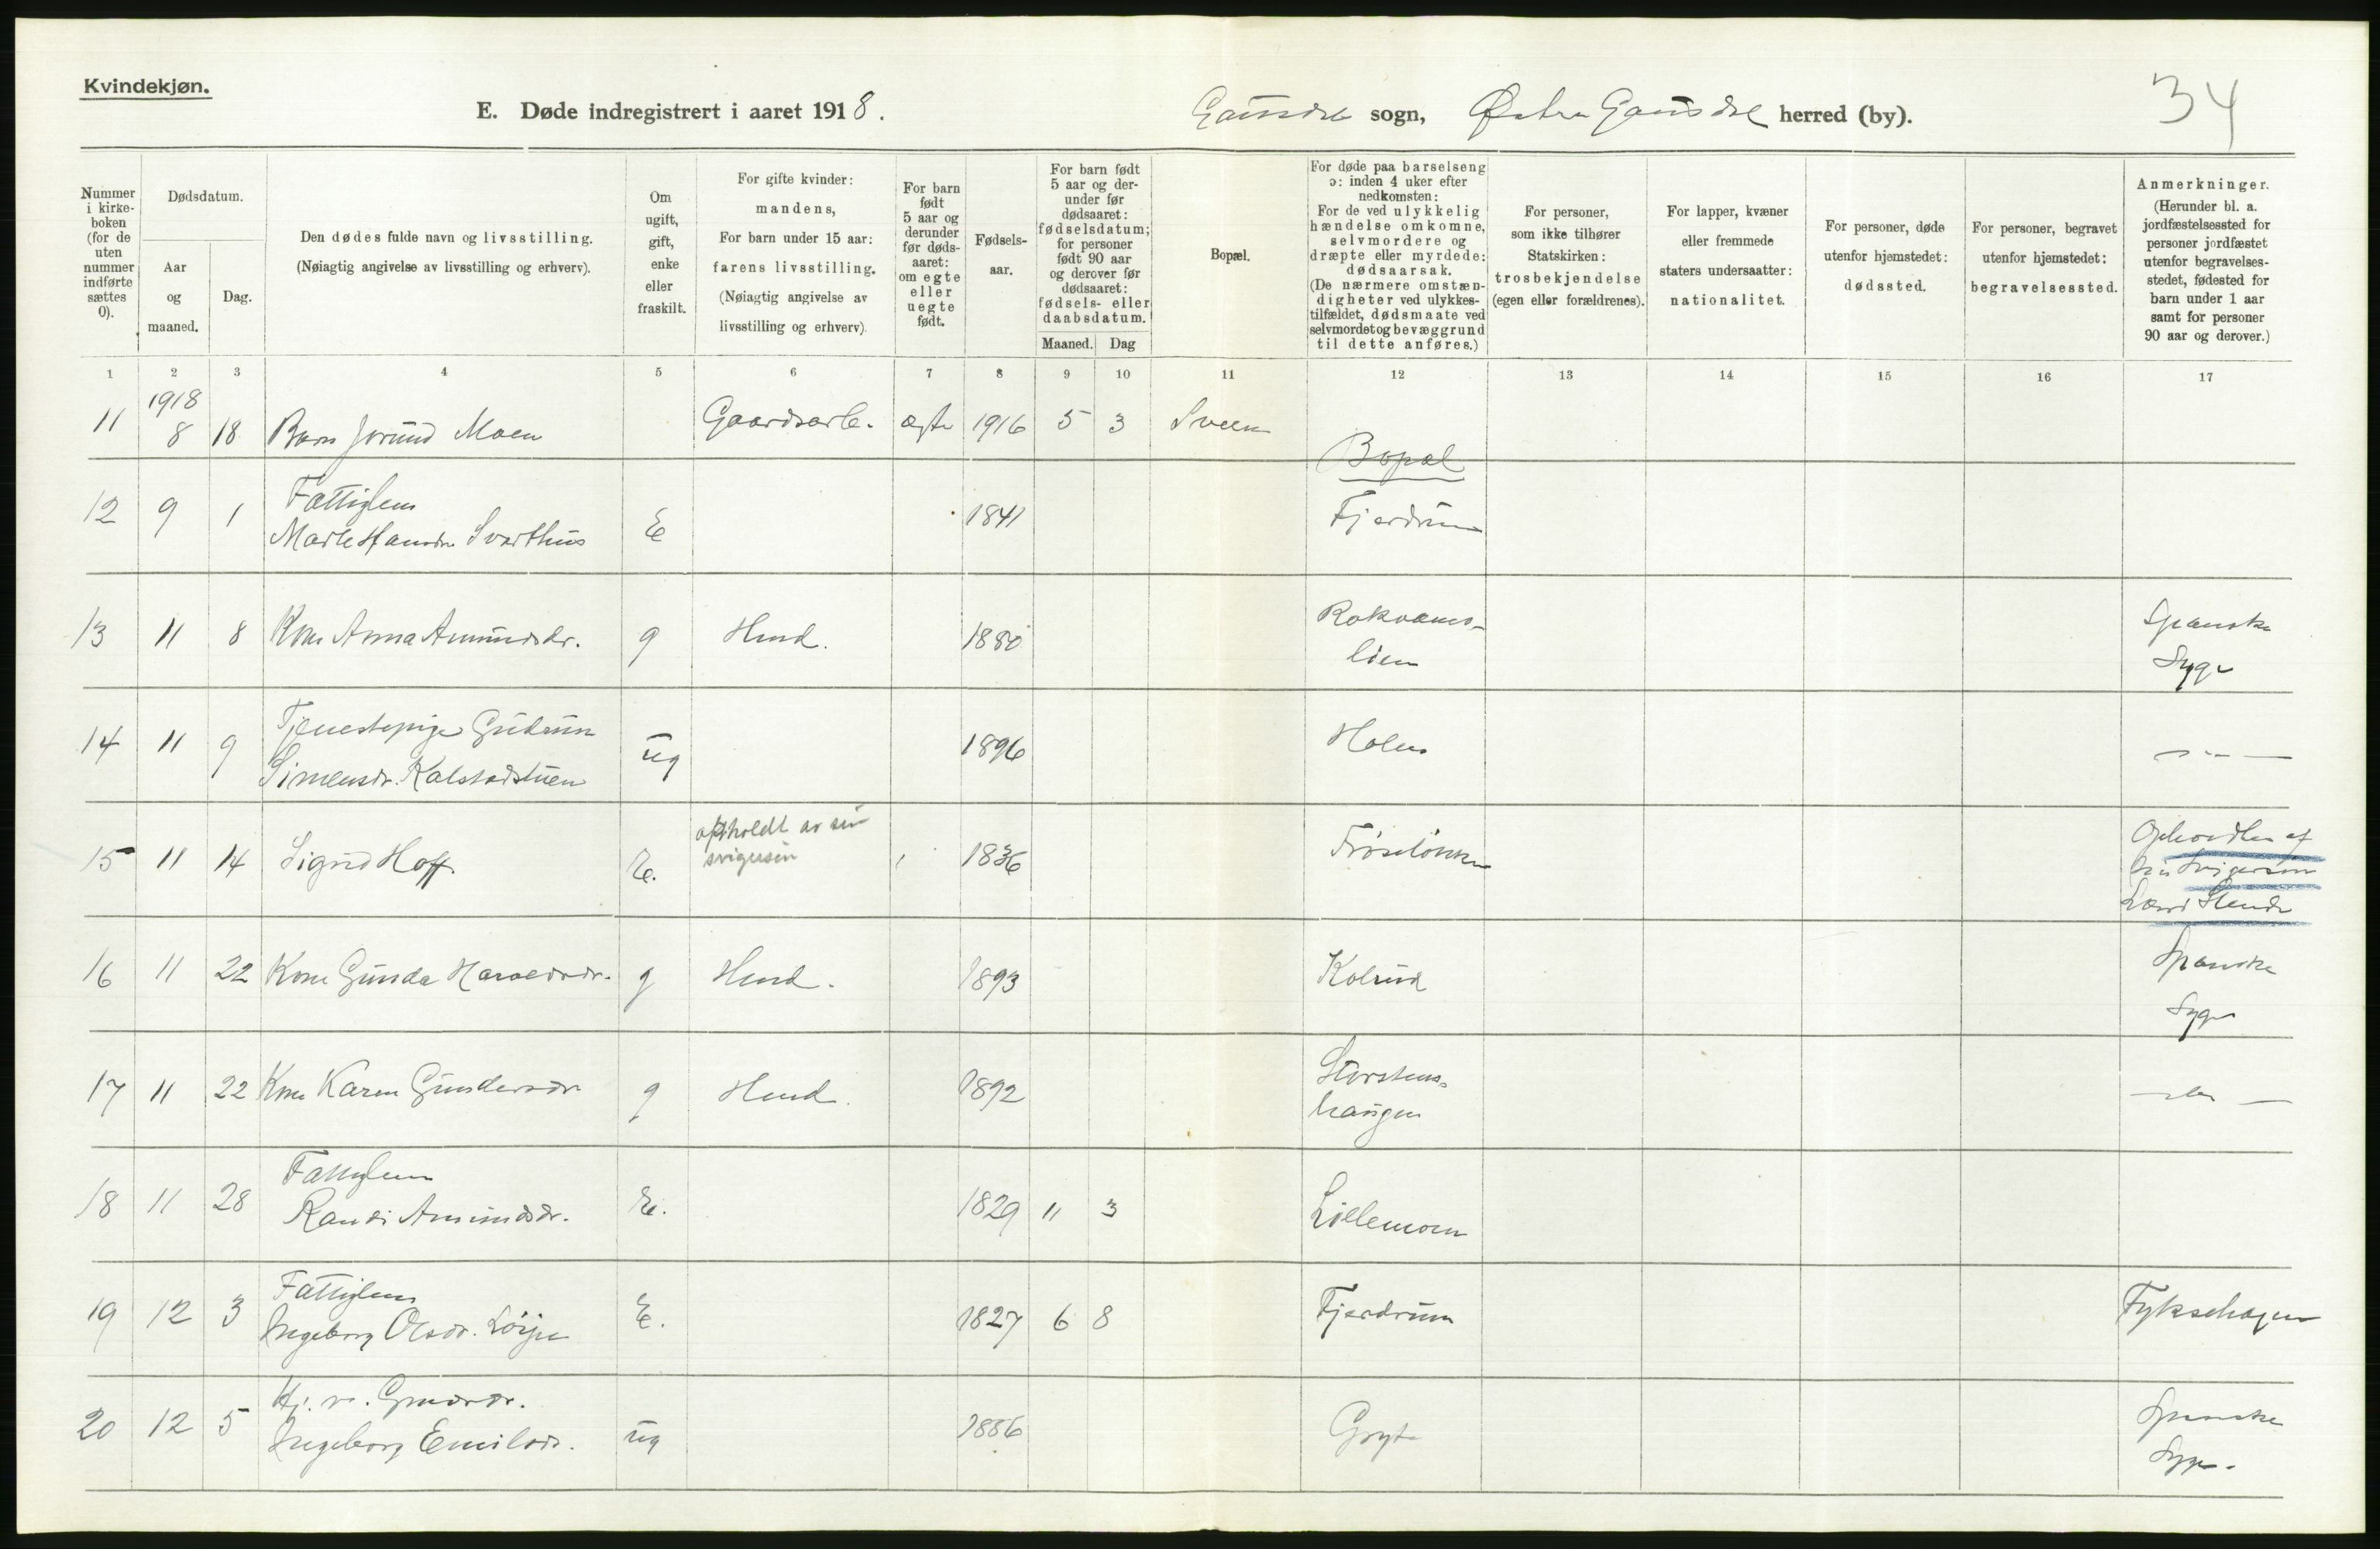 Kvindekjøn.
E. Døde indregistrert i aaret 1918.
Gausdal sogn, Østre Gausdal herred (by).
34
Nummer i kirkeboken (for de uten nummer indførte sættes 0).
Dødsdatum.
Aar og maaned.
Dag.
Den dødes fulde navn og livsstilling.
(Nøiagtig angivelse av livsstilling og erhverv).
Om ugift, gift, enke eller fraskilt.
For gifte kvinder: mandens,
For barn under 15 aar: farens livsstilling.
(Nøiagtig angivelse av livsstilling og erhverv).
For barn født 5 aar og derunder før dødsaaret: om egte eller uegte født.
Fødselsaar.
For barn født 5 aar og derunder før dødsaaret: fødselsdatum; for personer født 90 aar og derover før dødsaaret: fødsels- eller daabsdatum.
Maaned. Dag
Bopæl.
For døde paa barselseng ɔ: inden 4 uker efter nedkomsten:
For de ved ulykkelig hændelse omkomne, selvmordere og dræpte eller myrdede: dødsaarsak.
(De nærmere omstændigheter ved ulykkestilfældet, dødsmaate ved selvmordet og bevæggrund til dette anføres.)
For personer, som ikke tilhører Statskirken: trosbekjendelse (egen eller forældrenes).
For lapper, kvæner eller fremmede staters undersaatter: nationalitet.
For personer, døde utenfor hjemstedet: dødssted.
For personer, begravet utenfor hjemstedet: begravelsessted.
Anmerkninger.
(Herunder bl. a. jordfæstelsessted for personer jordfæstet utenfor begravelsesstedet, fødested for barn under 1 aar samt for personer 90 aar og derover.)
1 2 3 4 5 6 7 8 9 10 11 12 13 14 15 16 17
1918
11 8 18 Barn Jorund Moen Gaardsarb. ægte 1916 5 3 Sveen
Bopæl
12 9 1 Fattiglem
Marte Hansdr. Svarthus E 1841 Fjerdrum
13 11 8 Kone Anna Amundsdr. g Husmd. 1880 Rokvams-
lien
Spanske
Syge
14 11 9 Tjenestepige Gudrun
Simensdr. Kalstadstuen ug 1896 Holen
15 11 14 Sigrid Hoff E. opholdt av sin
svigersøn 1836
Opholdtes af
sin Svigersøn
16 11 22 Kone Gunda Haraldsdr. g Husmd. 1893 Kolrud Spanske
Syge
17 11 22 Kone Karen Gundersdr. g Husmd. 1892 Storstens-
haugen
18 11 28 Fattiglem
Randi Amundsdr. E. 1829 11 3 Lillemoen
19 12 3 Fattiglem
Ingeborg Olsdr. E. 1827 6 8 Fjerdrum Fyksehagen
20 12 5
Ingeborg Emilsdr. ug 1886 Gryte Spanske
Syge.